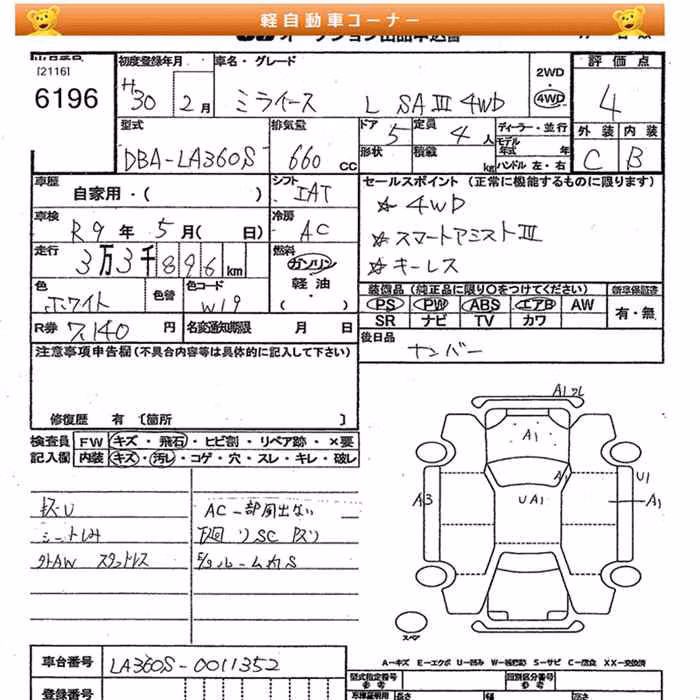 軽自動車コーナー
[2116]
6196
初度登録年月
H30 2月
車名・グレード
ミライース L SAⅢ 4WD
2WD
・
4WD
評価点
4
外装 内装
C B
型式
DBA-LA360S
排気量
660 CC
ドア 5
形状
定員 4 人
積載 kg
ディーラー・並行
モデル年式 年
ハンドル 左・右
車歴
自家用・( )
シフト
IAT
車検
R9年 5月( 日)
冷房
AC
走行
3万3千896km
燃料
ガソリン
軽油
・
( )
色
ホワイト
色替
色コード
W19
R券 7,140 円
名変通知期限 月 日
セールスポイント (正常に機能するものに限ります)
☆ 4WD
☆ スマートアシストⅢ
☆ キーレス
装備品(純正品に限り○をつけてください)
新車保証書
PS PW ABS エアB AW
SR ナビ TV カワ
有・無
後日品
ナンバー
注意事項申告欄(不具合内容等は具体的に記入して下さい)
修復歴 有〔箇所 〕
検査員記入欄
FW キズ・飛石・ヒビ割・リペア跡・×要
内装 キズ・汚レ・コゲ・穴・スレ・キレ・破レ
シートしみ
外AW スタットレス
AC一部風出ない
下廻りSC
A1
A1
UA1
A3
U1
A1
スペア
A-キズ E-エクボ U-凹ミ W-補修跡 S-サビ C-腐食 XX-交換済
車台番号
LA360S-0011352
登録番号
型式指定番号
類別区分番号
長さ
幅
高さ